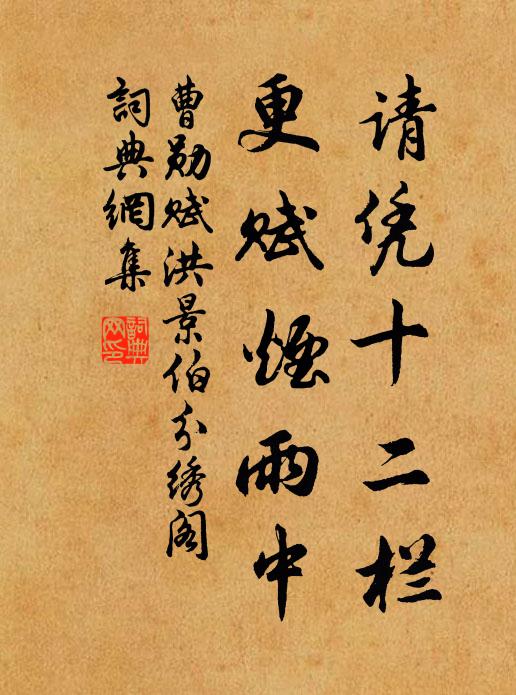 请凭十二栏
更赋烟雨中
曹勋赋洪景伯分绣阁
詞典網集
詞典网印